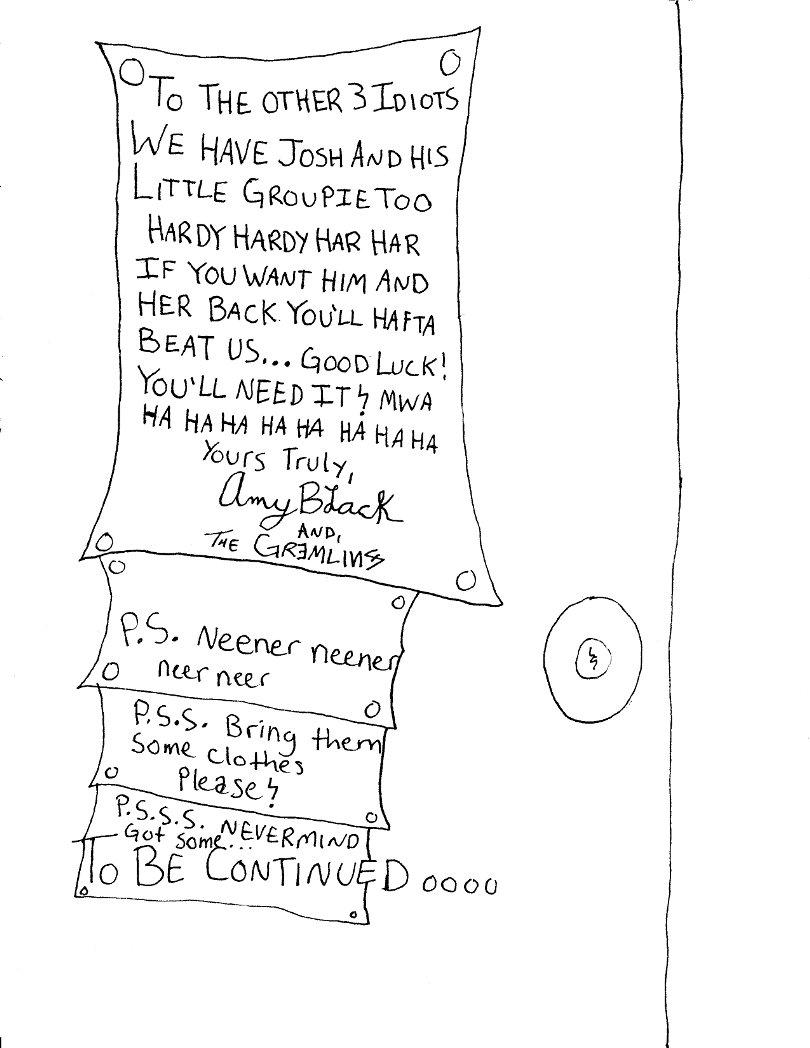 To THE OTHER 3 IDIOTS
WE HAVE JOSH AND HIS
LITTLE GROUPIE TOO
HARDY HARDY HAR HAR
IF YOU WANT HIM AND
HER BACK YOU'LL HAFTA
BEAT US... GOOD LUCK!
YOU'LL NEED IT! MWA
HA HA HA HA HA HA HA HA
Yours Truly,
Amy Black
AND,
THE GREMLINS
P.S. Neener neener
neer neer
P.S.S. Bring them
Some clothes
Please!
P.S.S.S. NEVERMIND
Got some...
To BE CONTINUED oooo